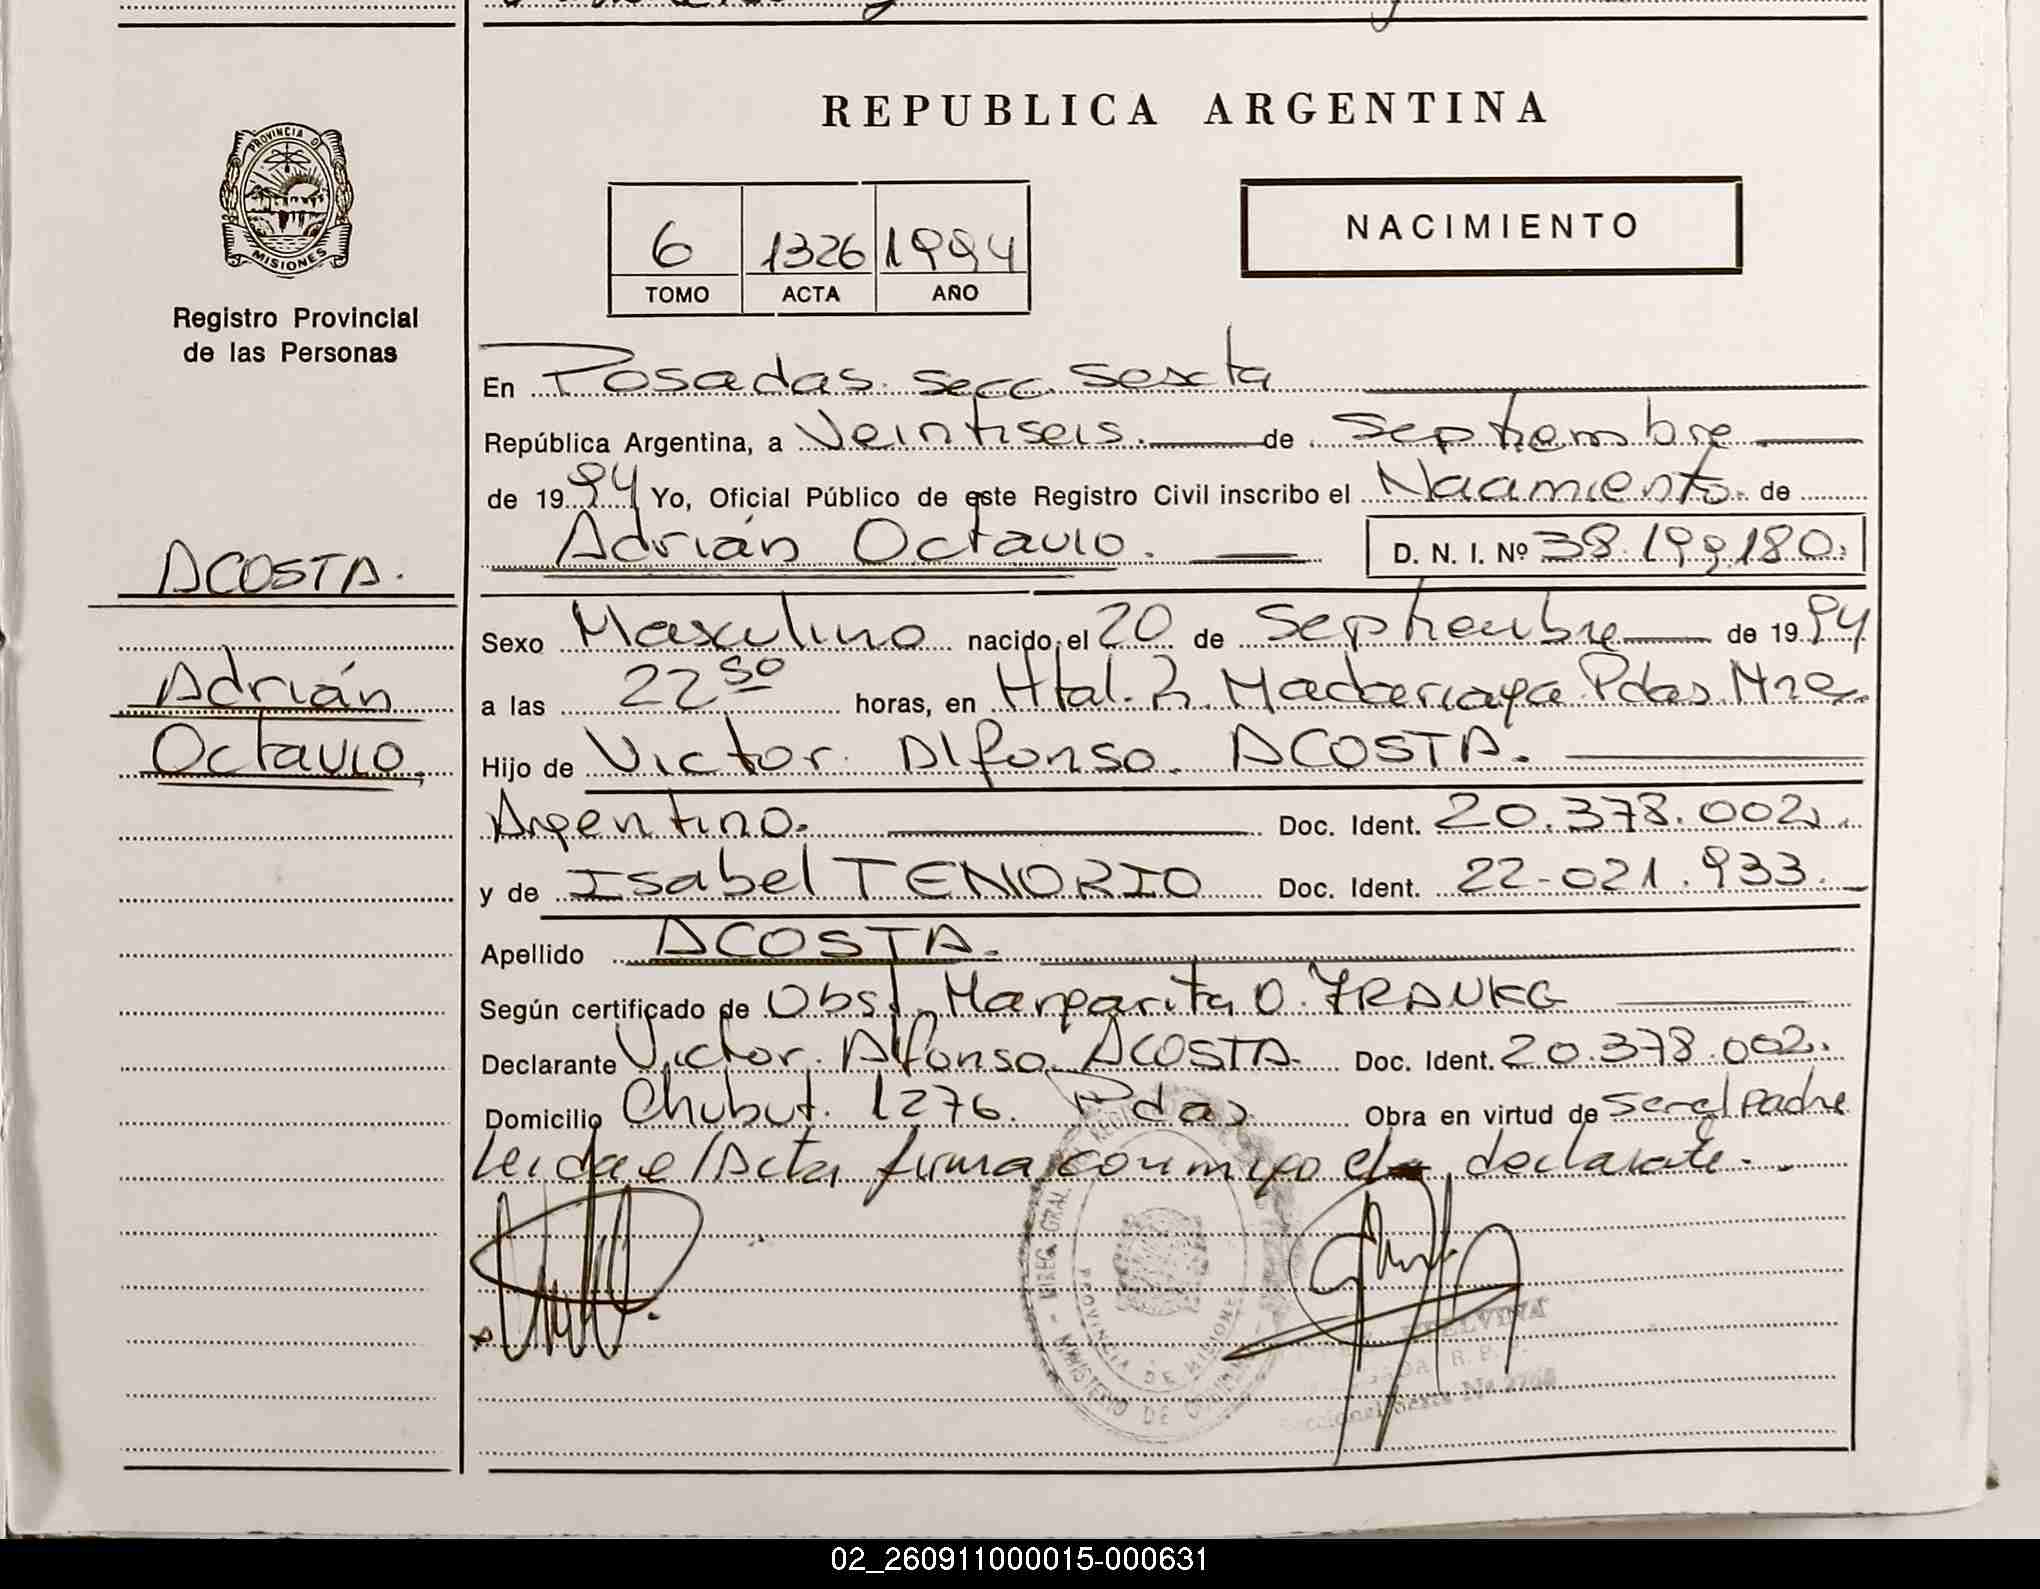 REPUBLICA ARGENTINA
PROVINCIA DE
MISIONES
Registro Provincial
de las Personas
6 1326 1994
TOMO ACTA AÑO
NACIMIENTO
En Posadas. secc. Sexta
República Argentina, a Veintiseis. de Septiembre
de 1994 Yo, Oficial Público de este Registro Civil inscribo el Nacimiento. de
Adrián Octavio. D. N. I. Nº 38.199.180.
ACOSTA.
Adrián
Octavio,
Sexo Masculino nacido el 20 de Septiembre de 1994
a las 22 50 horas, en Htal. R. Madariaga Pdas. Mnes
Hijo de Victor. Alfonso. ACOSTA.
Argentino. Doc. Ident. 20.378.002.
y de Isabel TENORIO Doc. Ident. 22-021.933.
Apellido ACOSTA.
Según certificado de Obst. Margarita O. FRANKG
Declarante Victor. Alfonso. ACOSTA. Doc. Ident. 20.378.002.
Domicilio Chubut. 1276. Pdas Obra en virtud de ser el padre
Leida e/Acta firma conmigo el declarante.
PROVINCIA DE MISIONES
MINISTERIO DE
DIREC. GRAL.
ELVINA
R. P. P.
Seccional Sexta Nº
02_260911000015-000631